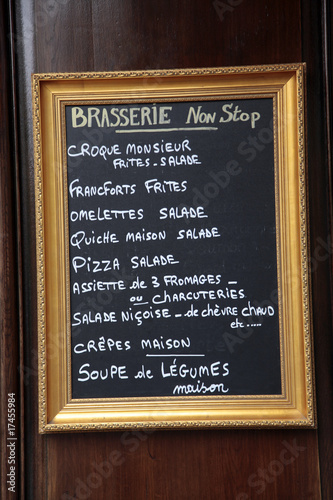 BRASSERIE Non Stop
CROQUE MONSIEUR
FRITES - SALADE
FRANCFORTS FRITES
OMELETTES SALADE
QUICHE MAISON SALADE
PIZZA SALADE
ASSIETTE de 3 FROMAGES -
ou CHARCUTERIES
SALADE NIÇOISE - de CHÈVRE CHAUD
etc.....
CRÊPES MAISON
SOUPE de LÉGUMES
maison
Adobe Stock | #17455984